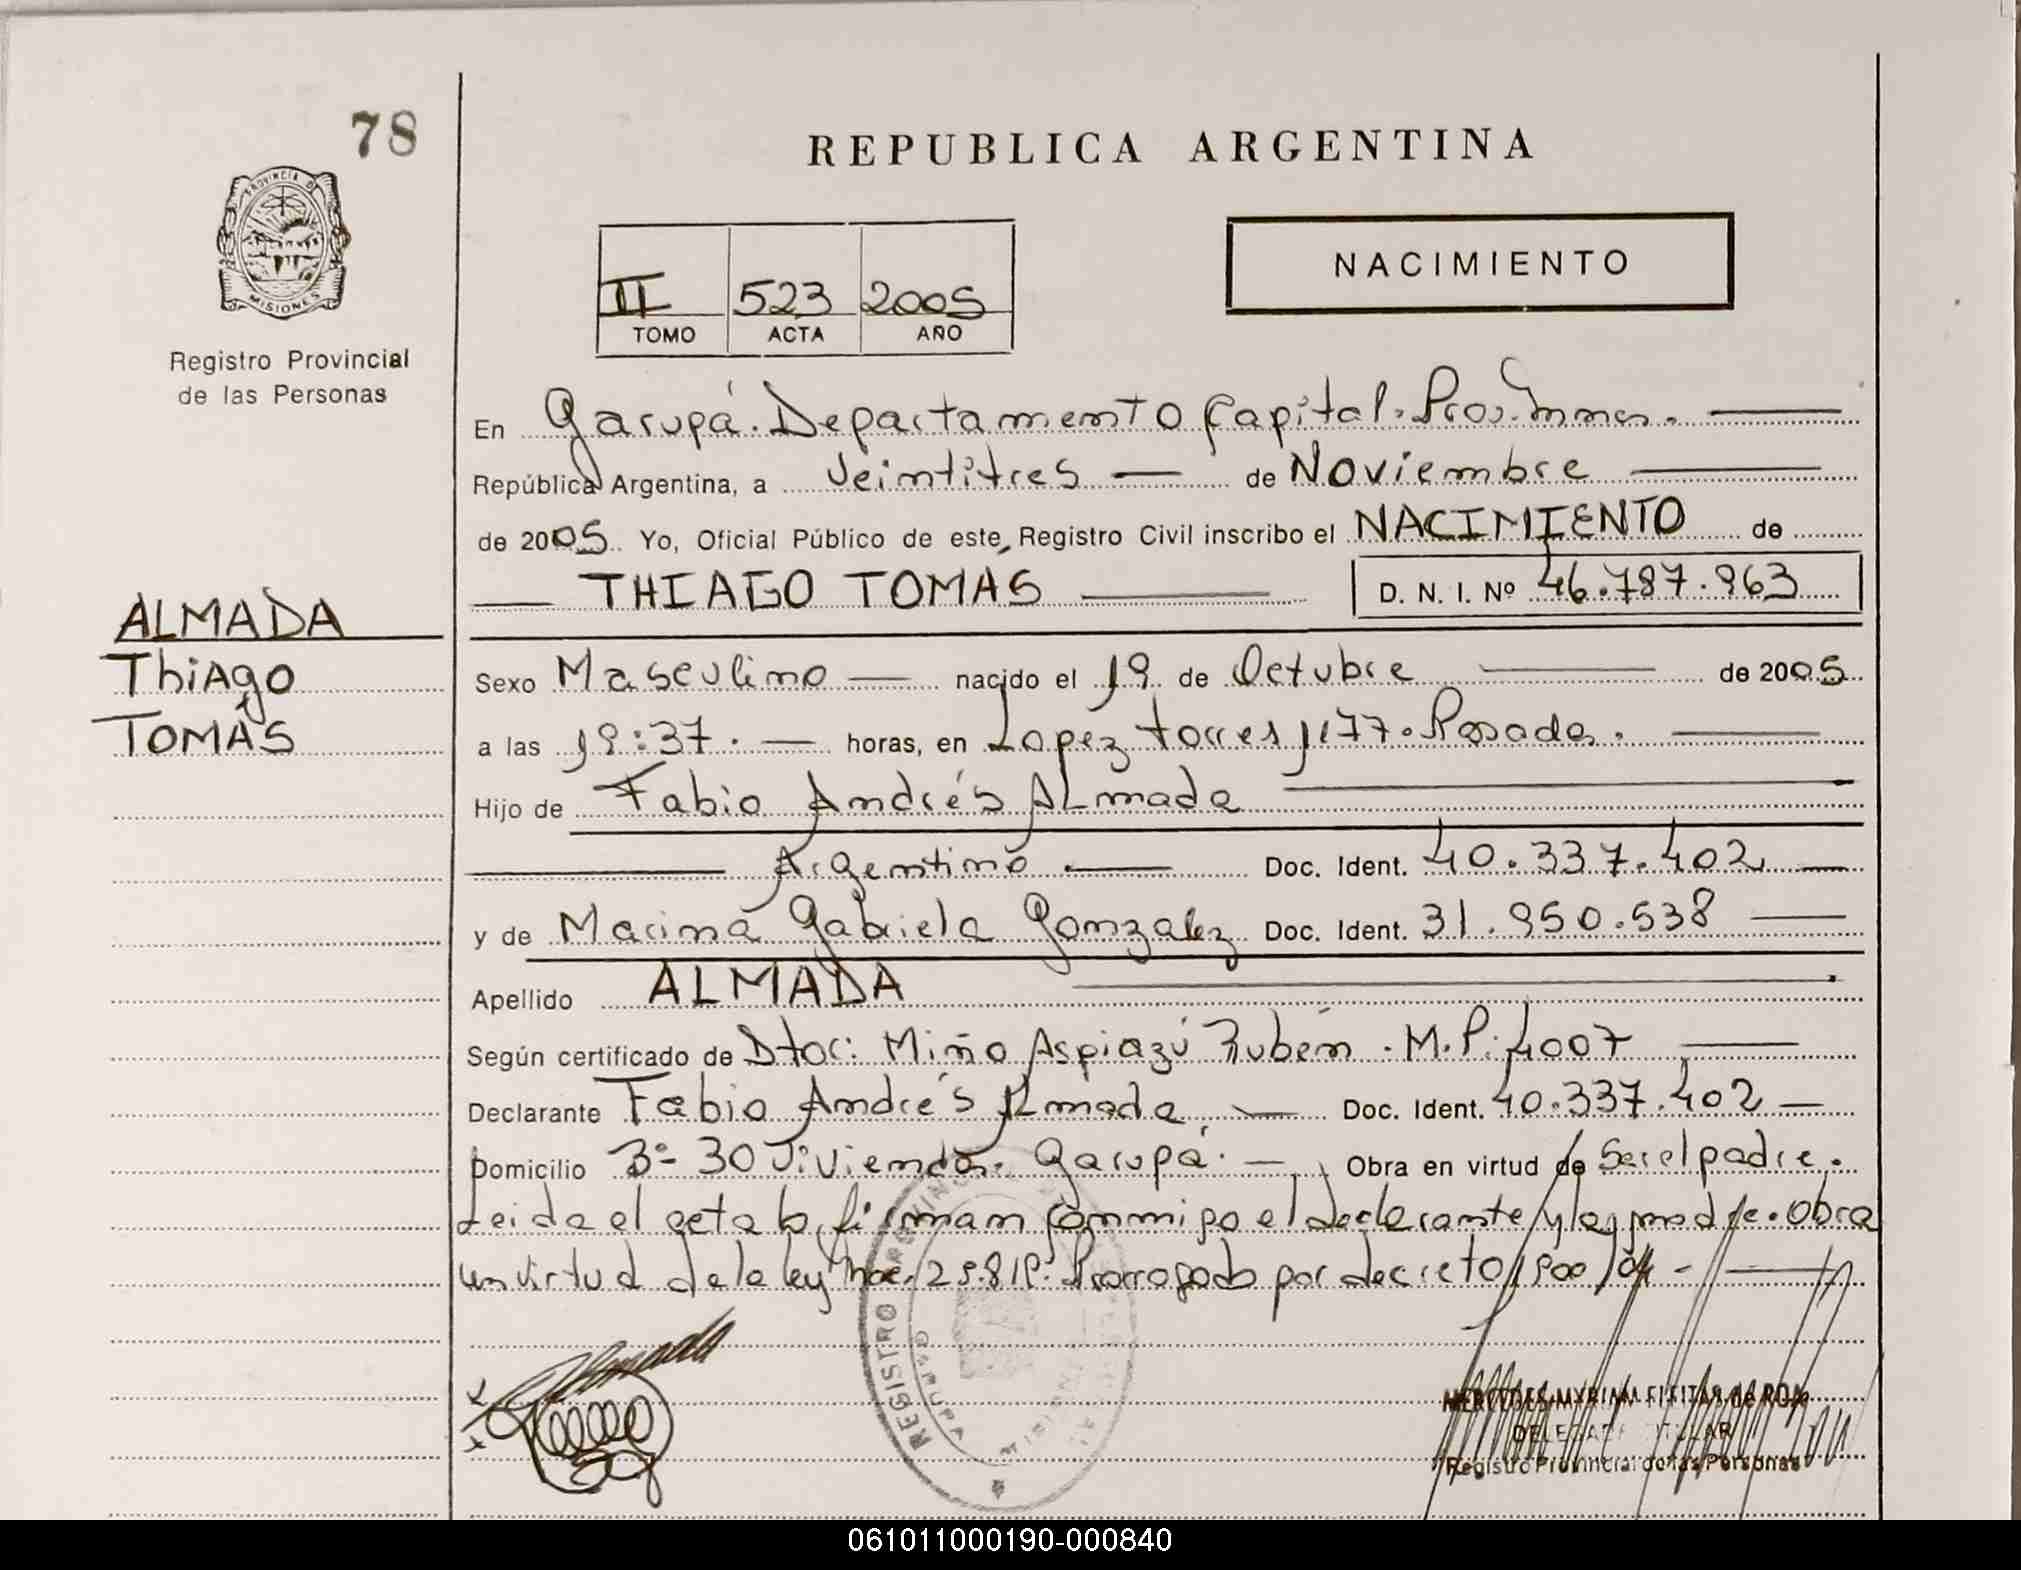 78
REPUBLICA ARGENTINA
PROVINCIA DE
MISIONES
Registro Provincial
de las Personas
II 523 2005
TOMO ACTA AÑO
NACIMIENTO
En Garupá. Departamento Capital. Prov. Mnes.
República Argentina, a Veintitres de Noviembre
de 2005 Yo, Oficial Público de este Registro Civil inscribo el NACIMIENTO de
THIAGO TOMAS D. N. I. Nº 46.787.963
ALMADA
Thiago
TOMAS
Sexo Masculino nacido el 19 de Octubre de 2005
a las 19:37. horas, en Lopez Torres 1177. Posadas.
Hijo de Fabio Andrés Almada
Argentino Doc. Ident. 40.337.402
y de Marina Gabriela Gonzalez Doc. Ident. 31.950.538
Apellido ALMADA
Según certificado de Dtor: Miño Aspiazú Rubén. M.P: 4007
Declarante Fabio Andrés Almada Doc. Ident. 40.337.402
Domicilio 3º 30 Viviendas. Garupá. Obra en virtud de Ser el padre.
Leida el acta la firman conmigo el declarante y la madre. Obra
en virtud de la ley Nro. 25.819. Prorrogado por decreto 1900/04 -
Almada
REGISTRO PROVINCIAL
GARUPA
MERCEDES MYRIAM FREITAS de ROA
DELEGADA TITULAR
Registro Provincial de las Personas
061011000190-000840